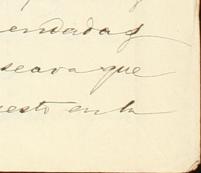 endadas
seava que
uesto en la